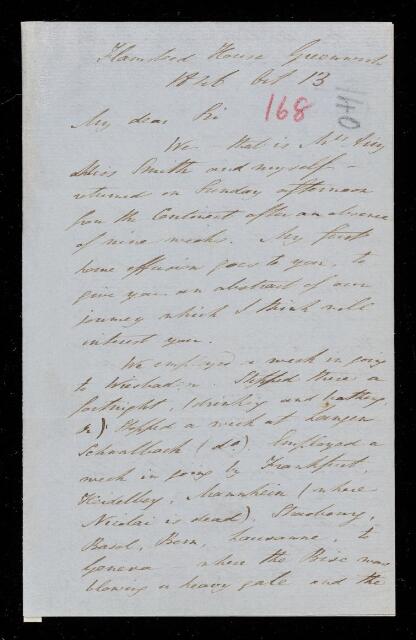 Flamsteed House Greenwich
1846 Oct 13
168
140
My dear Sir
We - that is Mrs Airy
Miss Smith and myself -
returned on Sunday afternoon
from the Continent after an absence
of nine weeks. My first
home effusion goes to you, to
give you an abstract of our
journey which I think will
interest you.
We employed a week in going
to Wiesbaden. Stopped there a
fortnight, (drinking and bathing,
&c). Stopped a week at Langen
Schwalbach (do). Employed a
week in going by Frankfort,
Heidelberg, Mannheim (where
Nicolai is dead), Strasbourg,
Basel, Bern, Lausanne, to
Geneva - where the Bise was
blowing a heavy gale and the